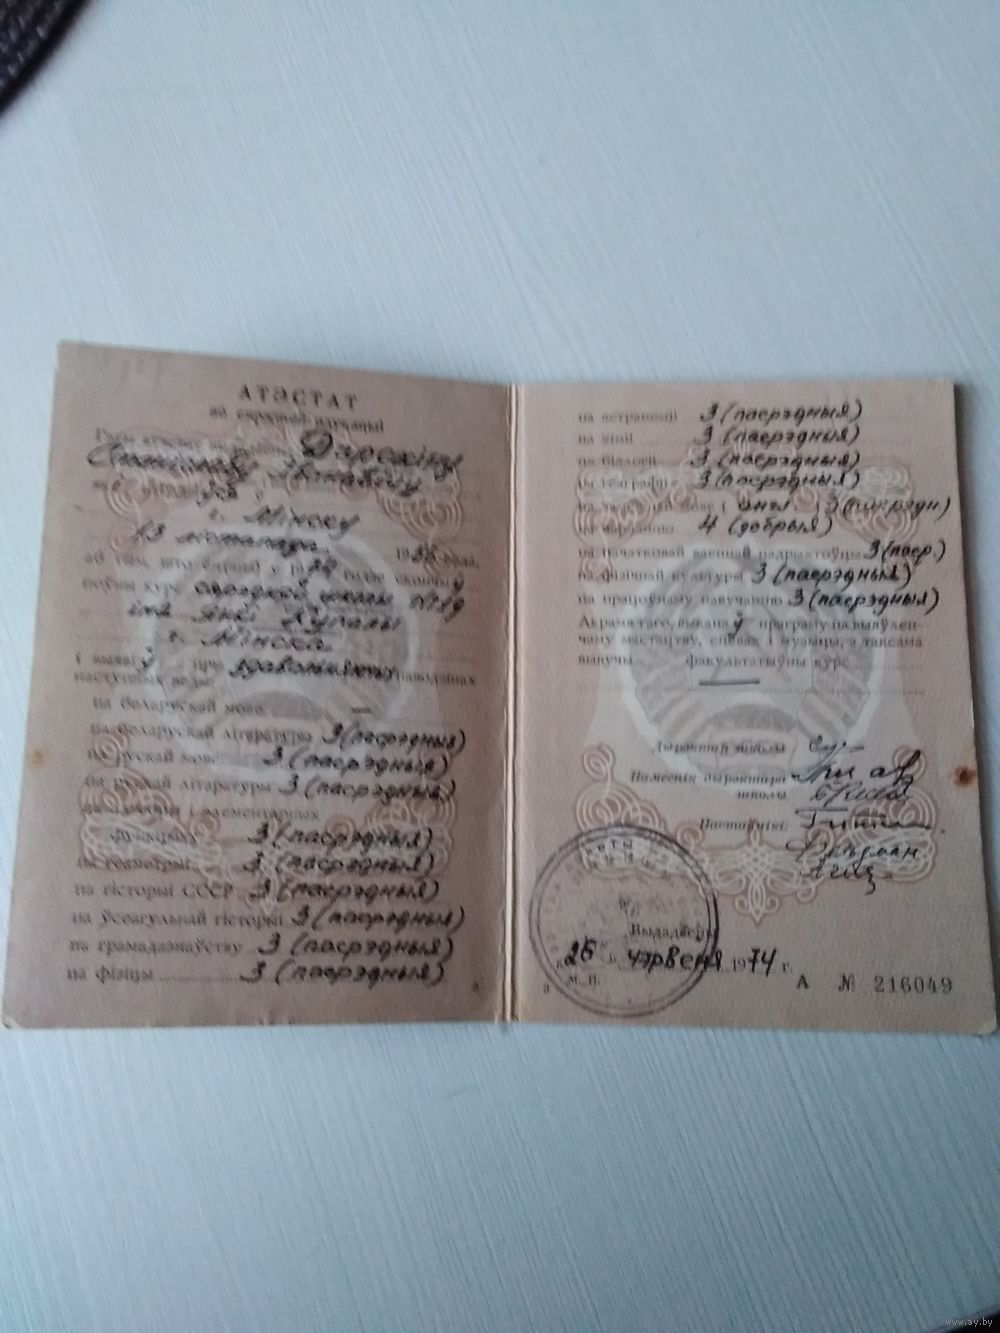 АТЭСТАТ
аб сярэдняй адукацыі
Дарожіну
г. Мінску
13 лістапада 1956 года,
аб тым, што ён(яна) у 1974 годзе скончыў
поўны курс сярэдняй школы №19
імя Янкі Купалы
г. Мінска
і выявіў пры здавальняючых паводзінах
наступныя веды:
па беларускай мове —
па беларускай літаратуры 3 (пасрэдныя)
па рускай мове 3 (пасрэдныя)
па рускай літаратуры 3 (пасрэдныя)
па алгебры і элементарных
функцыях 3 (пасрэдныя)
па геаметрыі 3 (пасрэдныя)
па гісторыі СССР 3 (пасрэдныя)
па ўсеагульнай гісторыі 3 (пасрэдныя)
па грамадазнаўству 3 (пасрэдныя)
па фізіцы 3 (пасрэдныя)
па астраноміі 3 (пасрэдныя)
па хіміі 3 (пасрэдныя)
па біялогіі 3 (пасрэдныя)
па геаграфіі 3 (пасрэдныя)
па замежнай мове (англ.) 3 (пасрэдн)
па чарчэнню 4 (добрыя)
па пачатковай ваеннай падрыхтоўцы 3 (паср.)
па фізічнай культуры 3 (пасрэдныя)
па працоўнаму навучанню 3 (пасрэдныя)
Акрамя таго, выканаў праграму па выяўлен-
чаму мастацтву, спевах і музыцы, а таксама
вывучы факультатыўны курс
—
Дырэктар школы
Намеснік дырэктара
школы
Настаўнікі:
Фельдман
Выдадзены
26 чэрвеня 1974 г.
М. П.
А № 216049
www.ay.by